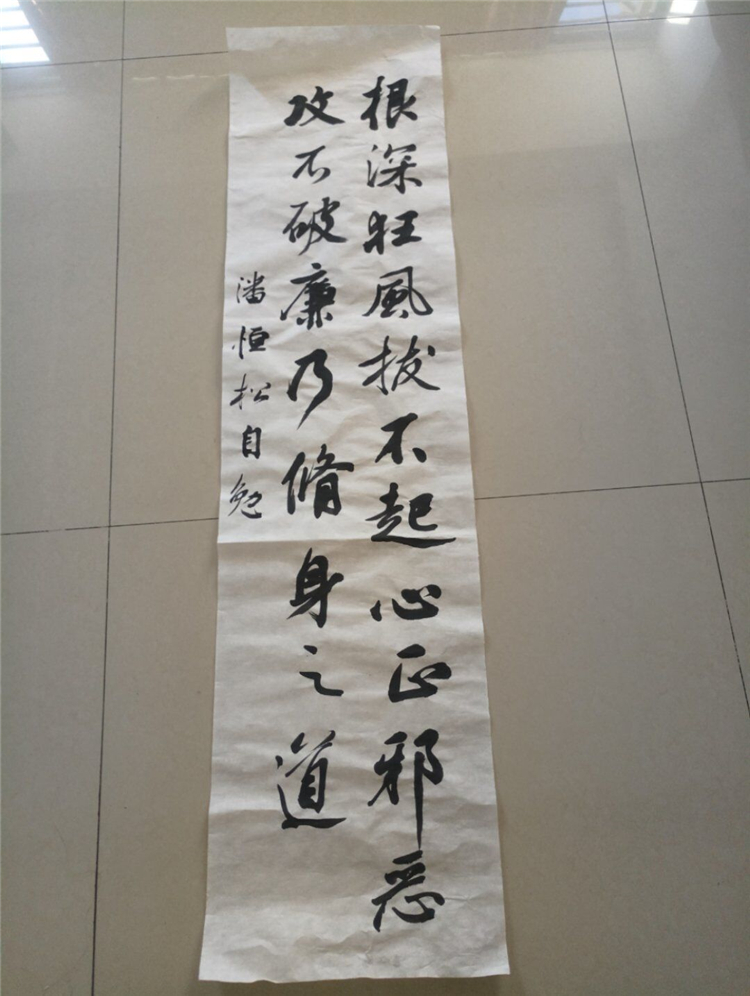 根深狂風拔不起心正邪恶
攻不破廉乃脩身之道
潘恒松自勉